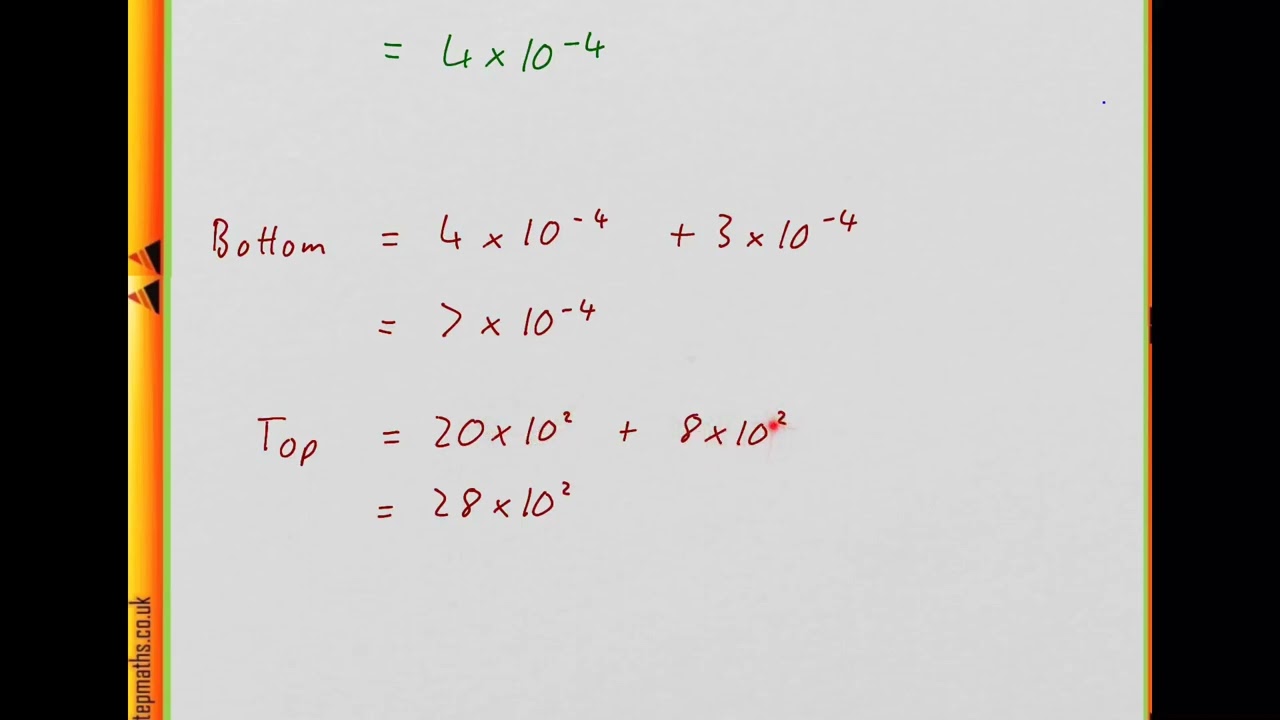 = 4 × 10⁻⁴
Bottom = 4 × 10⁻⁴ + 3 × 10⁻⁴
= 7 × 10⁻⁴
Top = 20 × 10² + 8 × 10²
= 28 × 10²
tepmaths.co.uk